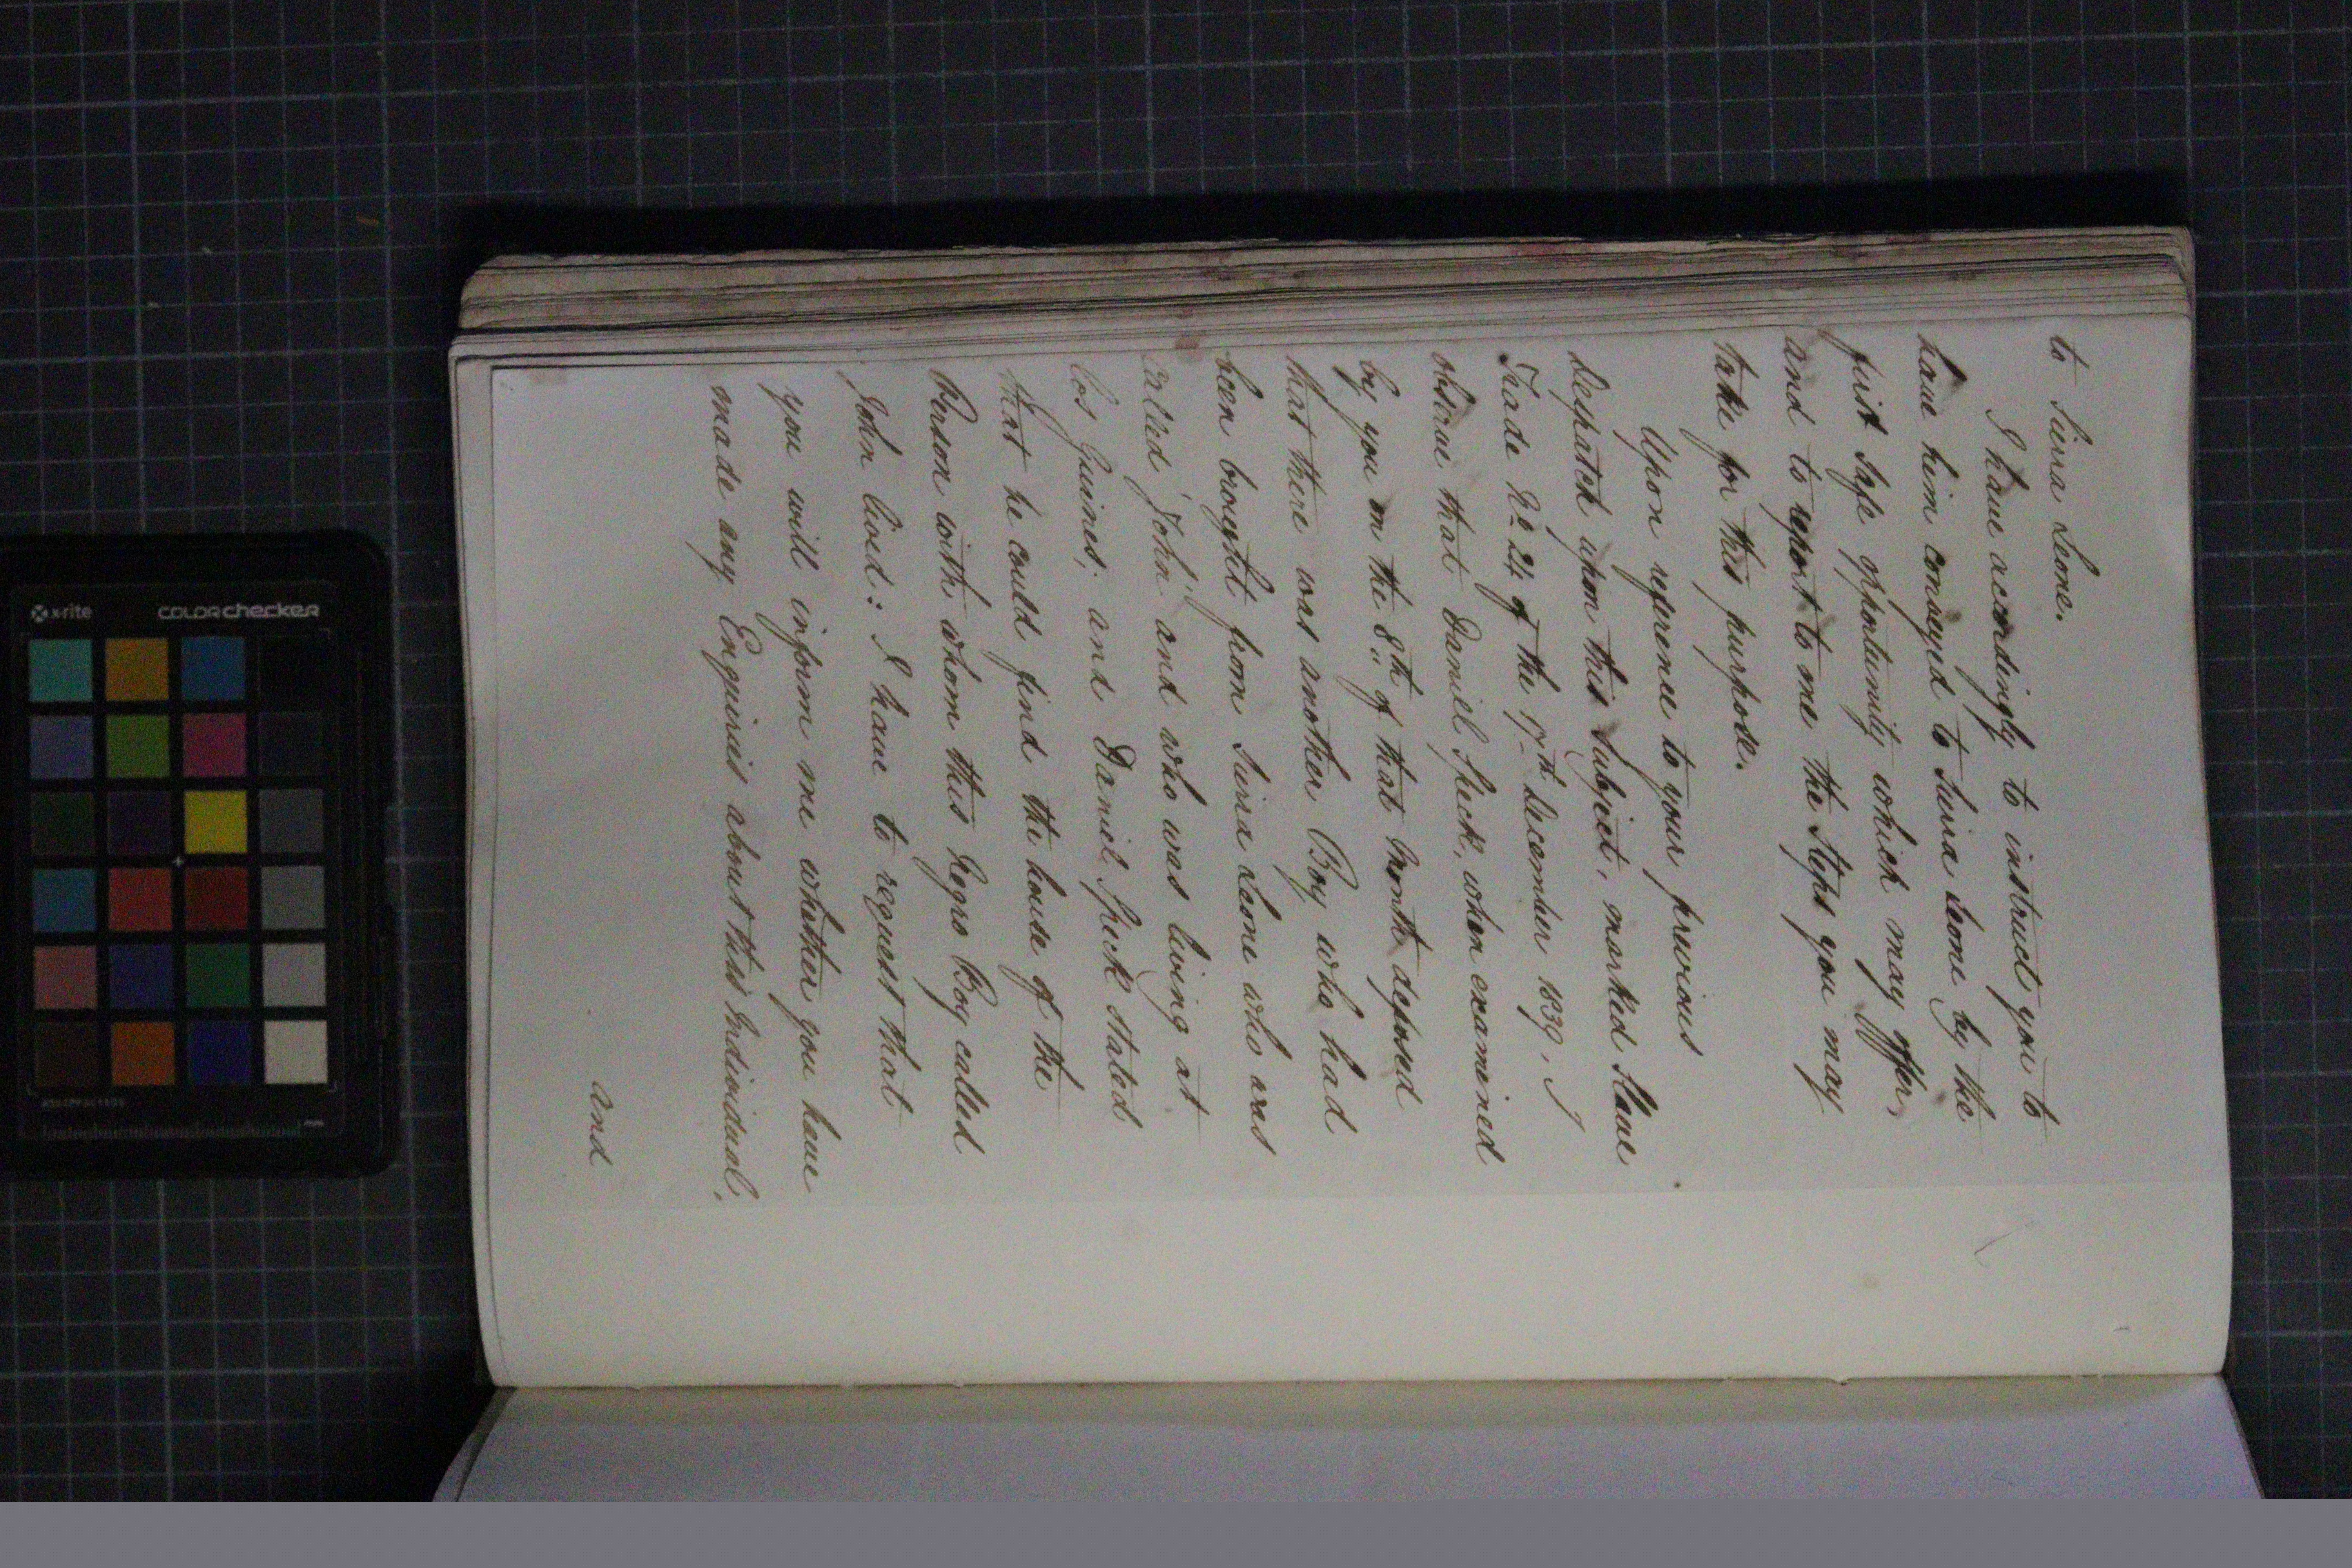 to Sierra Leone.
I have accordingly to instruct you to
have him conveyed to Sierra Leone by the
first safe opportunity which may offer,
and to report to me the Steps you may
take for this purpose.
Upon reference to your previous
Despatch upon this Subject, marked Slave
Trade No 24 of the 17th December 1839, I
observe that Daniel Speck, when examined
by you on the 8th of that Month, deposed
that there was another Boy who had
been brought from Sierra Leone who was
called "John," and who was living at
Los Guines; and Daniel Speck stated
that he could find the house of the
Person with whom this Negro Boy called
John lived: I have to request that
you will inform me whether you have
made any Enquiries about this Individual,
and
x-rite
COLORchecker
mm